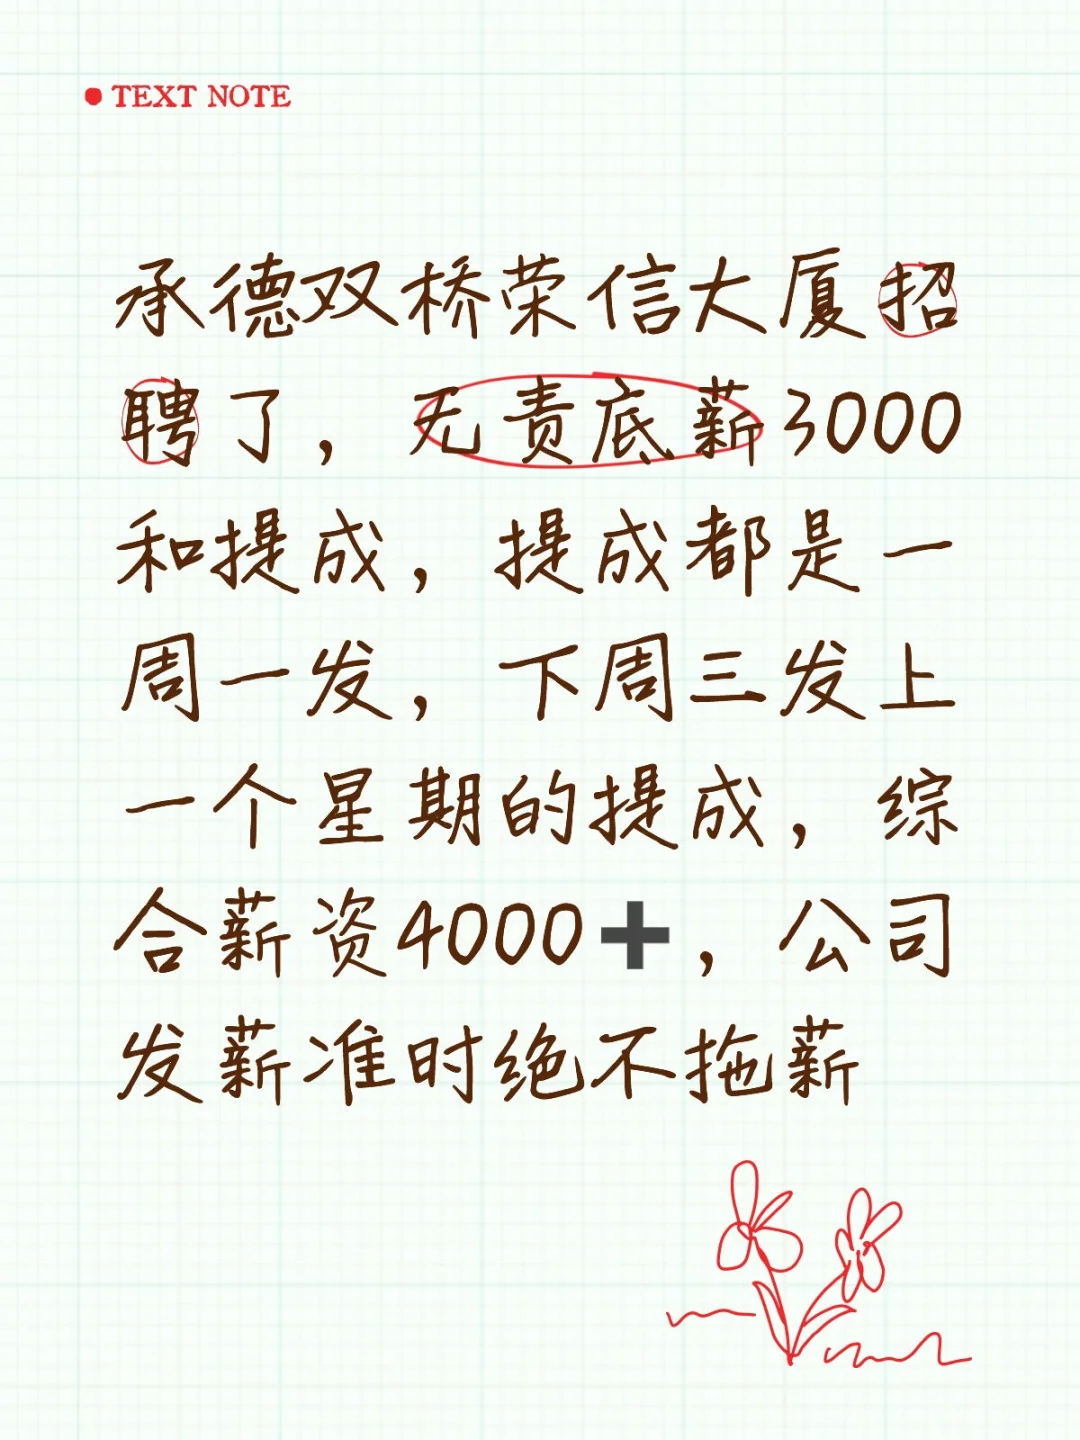 TEXT NOTE
承德双桥荣信大厦招
聘了，无责底薪3000
和提成，提成都是一
周一发，下周三发上
一个星期的提成，综
合薪资4000➕，公司
发薪准时绝不拖薪